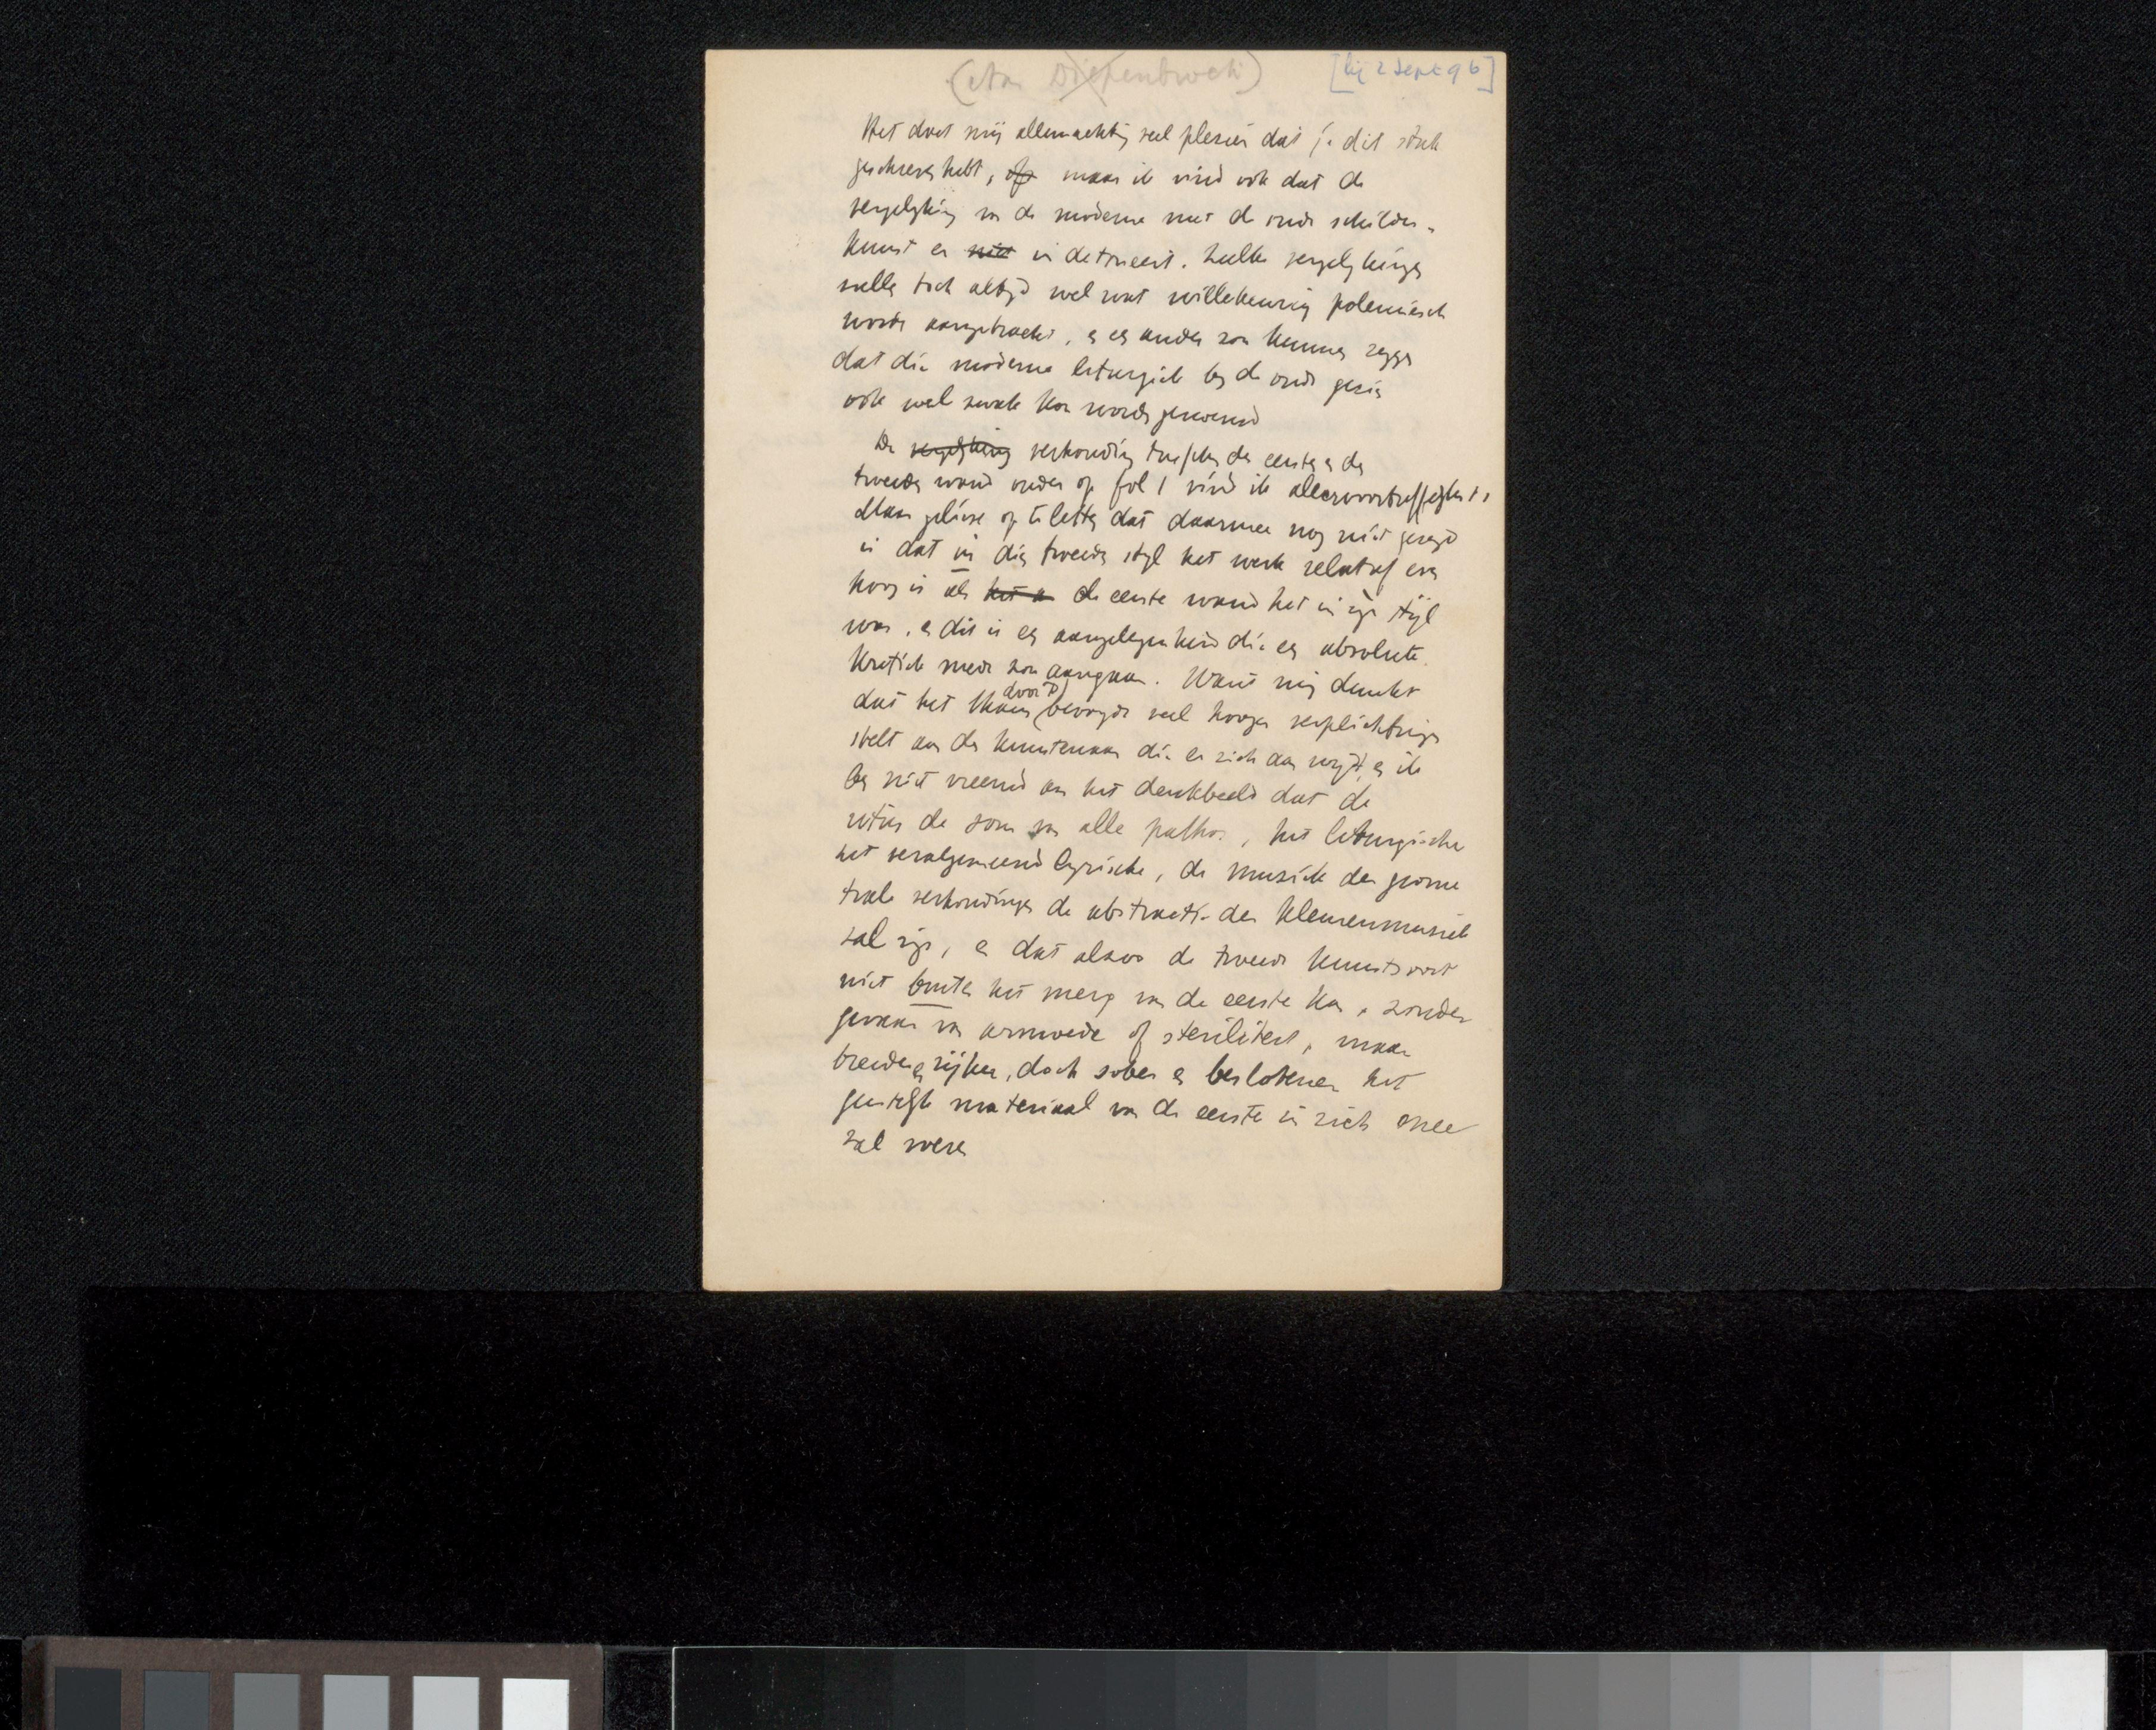 (Aan Diepenbrock) [bij 2 Sept 96]
Het doet mij allemachtig veel plezier dat je dit stuk
geschreven hebt, of maar ik vind ook dat de
vergelyking van de moderne met de oude schilder-
kunst er niet in detoneert. Zulke vergelykingen
zullen toch altyd wel wat willekeurig polemiesch
worden aangebracht, en een ander zou kunnen zeggen
dat die moderne liturgiek by de oude gezien
ook wel zwak kon worden genoemd
De vergelyking verhouding tusschen den eersten en den
tweeden wand onder op fol 1 vind ik allervoortreffelykst,
Maar gelieve op te letten dat daarmee nog niet gezegd
is dat in dien tweeden styl het werk relatief even
hoog is als het a de eerste wand het in zyn styl
was, en dit is een aangelegenheid die een absolute
kritiek meer zou aangaan. Want mij dunkt
dat het thans door D beoogde veel hooger verplichtingen
stelt aan den kunstenaar die er zich aan wydt, en ik
ben niet vreemd aan het denkbeeld dat de
ritus de som van alle pathos, het liturgische
het veralgemeend lyrische, de muziek der geome
trale verhoudingen de abstractie der kleurenmuziek
zal zyn, en dat alzoo de tweede kunstsoort
niet buiten het merg van de eerste kan, zonder
gevaar van armoede of steriliteit, maar
breeder en rijker, doch sober en beslotener het
geestelyk materiaal van de eerste in zich
zal